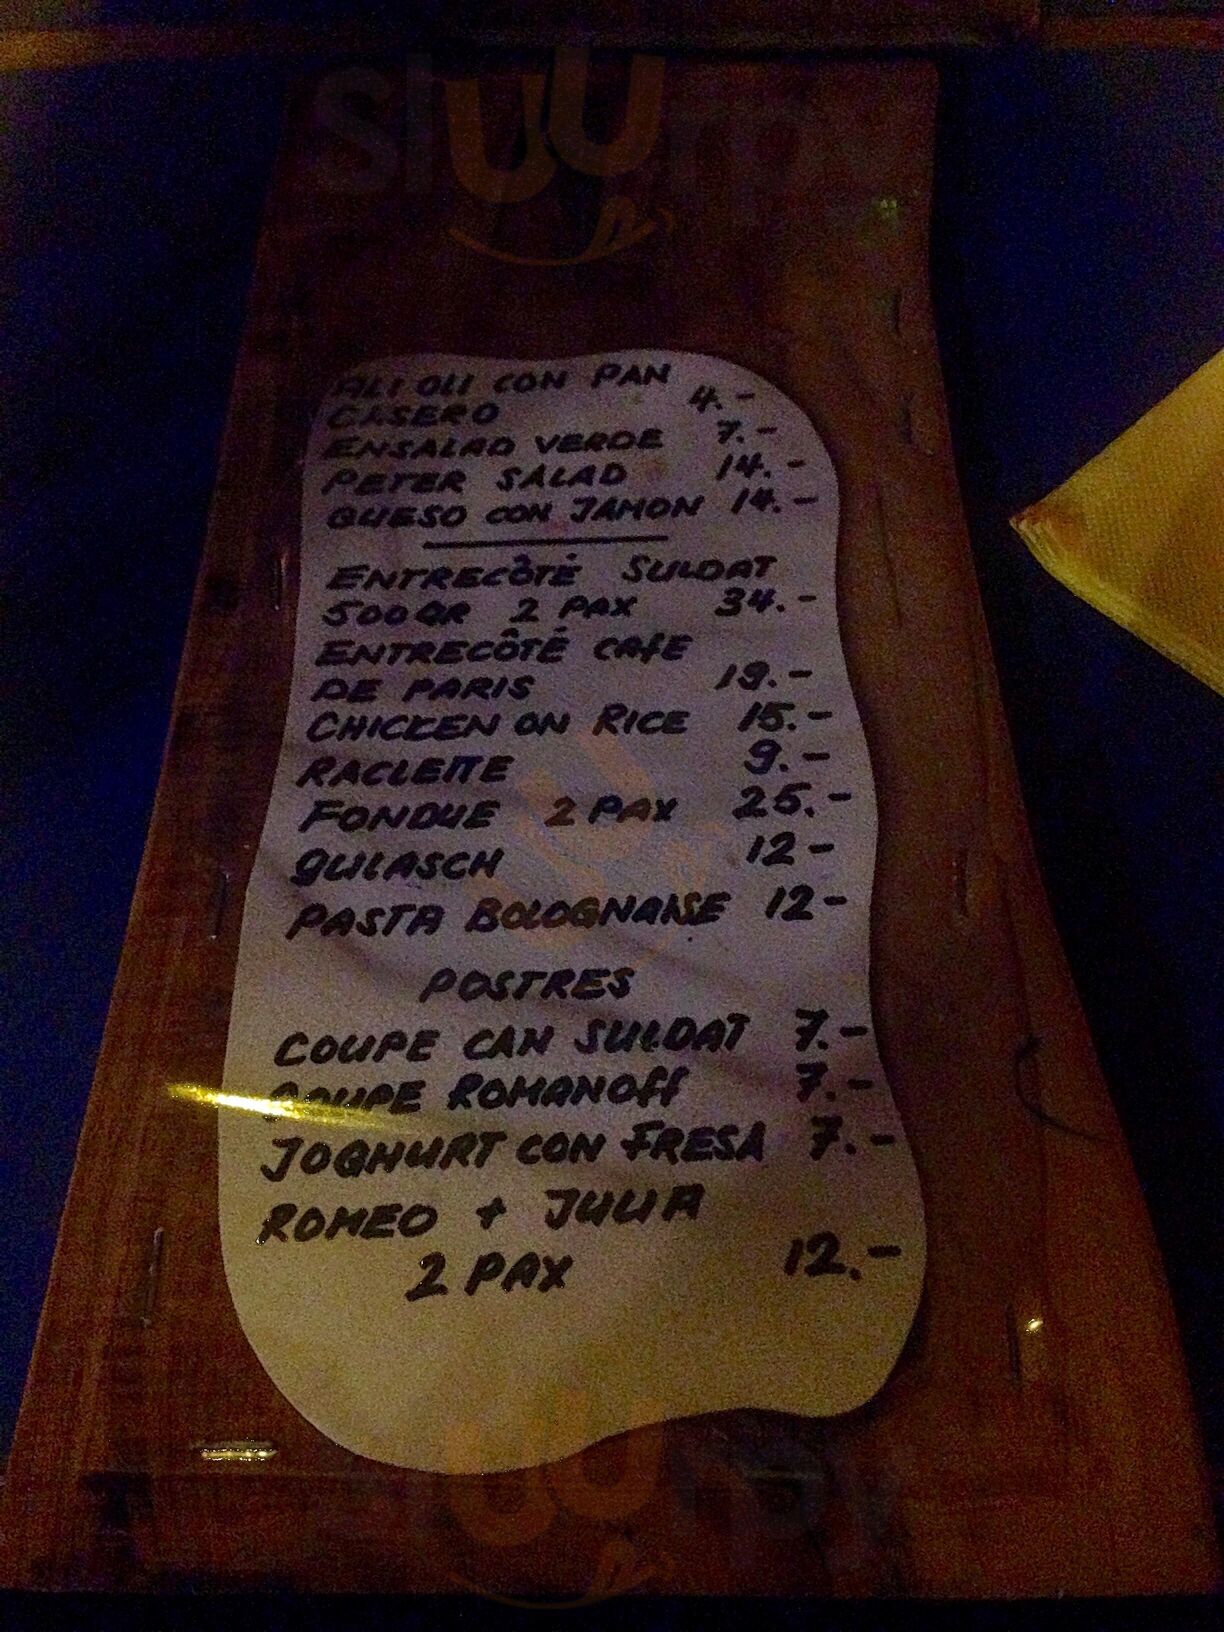 Sluurpy
ALI OLI CON PAN
CASERO 4.-
ENSALAD VERDE 7.-
PETER SALAD 14.-
QUESO CON JAMON 14.-
ENTRECÔTÉ SULDAT
500GR 2 PAX 34.-
ENTRECÔTÉ CAFE
DE PARIS 19.-
CHICKEN ON RICE 15.-
RACLETTE 9.-
FONDUE 2 PAX 25.-
GULASCH 12-
PASTA BOLOGNAISE 12-
POSTRES
COUPE CAN SULDAT 7.-
COUPE ROMANOFF 7.-
JOGHURT CON FRESA 7.-
ROMEO + JULIA
2 PAX 12.-
Sluurpy